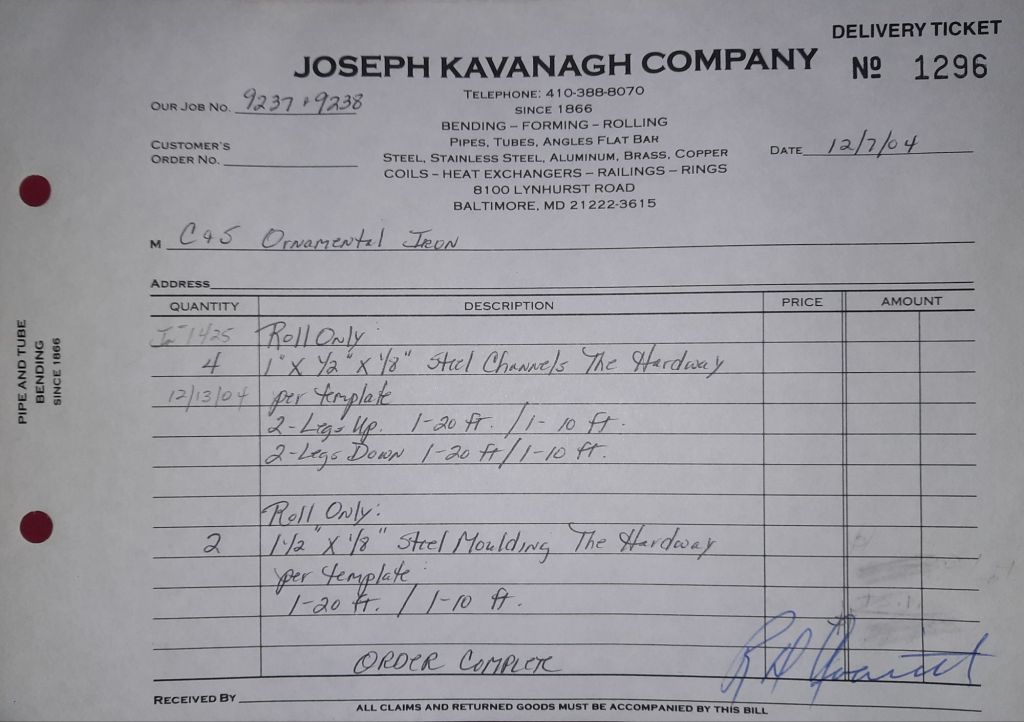 DELIVERY TICKET
JOSEPH KAVANAGH COMPANY
Nº 1296
TELEPHONE: 410-388-8070
SINCE 1866
BENDING – FORMING – ROLLING
PIPES, TUBES, ANGLES FLAT BAR
STEEL, STAINLESS STEEL, ALUMINUM, BRASS, COPPER
COILS – HEAT EXCHANGERS – RAILINGS – RINGS
8100 LYNHURST ROAD
BALTIMORE, MD 21222-3615
OUR JOB NO. 9237 & 9238
CUSTOMER'S
ORDER NO.
DATE 12/7/04
M C & S Ornamental Iron
ADDRESS
QUANTITY DESCRIPTION PRICE AMOUNT
1425 Roll Only:
4 1" X 1/2" X 1/8" Steel Channels The Hardway
12/13/04 per template
2-Legs Up. 1-20 ft. / 1-10 ft.
2-Legs Down 1-20 ft / 1-10 ft.
Roll Only:
2 1 1/2" X 1/8" Steel Moulding The Hardway
per template
1-20 ft. / 1-10 ft.
ORDER COMPLETE
RECEIVED BY
ALL CLAIMS AND RETURNED GOODS MUST BE ACCOMPANIED BY THIS BILL
PIPE AND TUBE
BENDING
SINCE 1866